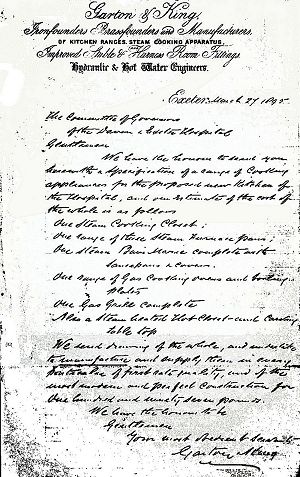 Garton & King,
Ironfounders Brassfounders and Manufacturers,
OF KITCHEN RANGES, STEAM COOKING APPARATUS,
Improved Stable & Harness Room Fittings,
Hydraulic & Hot Water Engineers.
Exeter, March 27 1895
The Committee of Governors
of the Devon & Exeter Hospital
Gentlemen
We have the honour to send you
herewith a Specification of a range of Cooking
appliances for the proposed new Kitchen of
the Hospital, and our Estimate of the cost of
the whole is as follows
One Steam Cooking Closet;
One range of three Steam Furnace pans.
One Steam Bain Marie complete with
Saucepans & covers.
One range of Gas Cooking ovens and boiling
plates
One Gas Grill complete
Also a Steam heated Hot Closet and Carving
table top
We send drawing of the whole, and undertake
to manufacture and supply them in every
particular of first rate quality, and of the
most modern and perfect Construction for
One hundred and ninety seven pounds.
We have the honour to be
Gentlemen
Your most obedient Servants
Garton & King